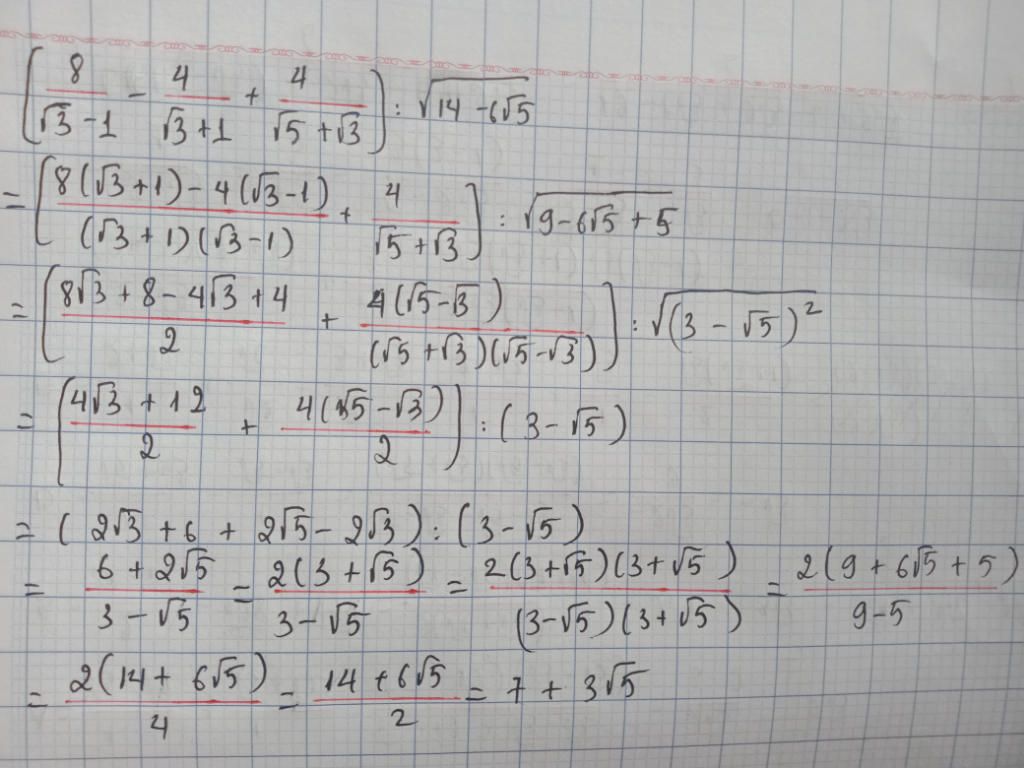 (8/(√3 - 1) - 4/(√3 + 1) + 4/(√5 + √3)) : √(14 - 6√5)
= [(8(√3 + 1) - 4(√3 - 1))/((√3 + 1)(√3 - 1)) + 4/(√5 + √3)] : √(9 - 6√5 + 5)
= ((8√3 + 8 - 4√3 + 4)/2 + 4(√5 - √3)/((√5 + √3)(√5 - √3))) : √((3 - √5)²)
= ((4√3 + 12)/2 + 4(√5 - √3)/2) : (3 - √5)
= (2√3 + 6 + 2√5 - 2√3) : (3 - √5)
= (6 + 2√5)/(3 - √5) = 2(3 + √5)/(3 - √5) = 2(3 + √5)(3 + √5)/((3 - √5)(3 + √5)) = 2(9 + 6√5 + 5)/(9 - 5)
= 2(14 + 6√5)/4 = (14 + 6√5)/2 = 7 + 3√5